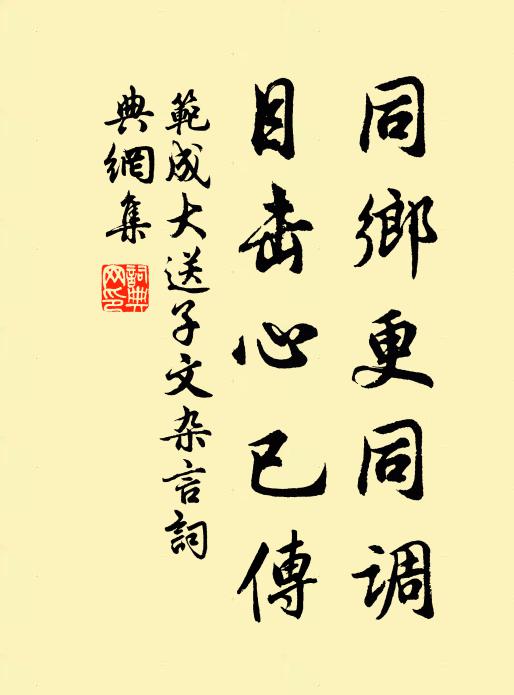 同鄉更同调
目击心已傳
範成大送子文杂言詞
典網集
詞典网印